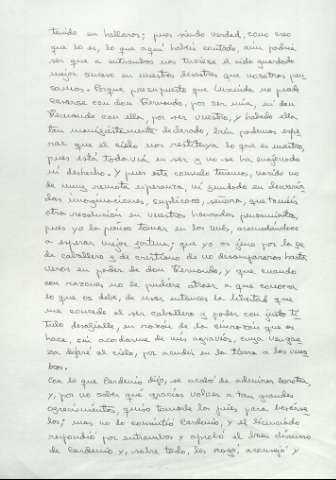 tenido en hallaros; pues siendo verdad, como creo
que lo es, lo que aquí habéis contado, aún podría
ser que a entrambos nos tuviese el cielo guardado
mejor suceso en nuestros desastres que nosotros pen
samos. Porque presupuesto que Luscinda no puede
casarse con don Fernando, por ser mía, ni don
Fernando con ella, por ser vuestro, y haberlo ella
tan manifiestamente declarado, bien podemos espe
rar que el cielo nos restituya lo que es nuestro,
pues está todavía en ser y no se ha enajenado
ni deshecho. Y pues este consuelo tenemos, nacido no
de muy remota esperanza, ni fundado en desvaria
das imaginaciones, suplícoos, señora, que toméis
otra resolución en vuestros honrados pensamientos,
pues yo la pienso tomar en los míos, acomodándoos
a esperar mejor fortuna; que yo os juro por la fe
de caballero y de cristiano de no desampararos hasta
veros en poder de don Fernando, y que cuando
con razones no le pudiere atraer a que conozca
lo que os debe, de usar entonces la libertad que
me concede el ser caballero y poder con justo tí
tulo desafialle, en razón de la sinrazón que os
hace, sin acordarme de mis agravios, cuya vengan
za dejaré al cielo, por acudir en la tierra a los vues
tros.
Con lo que Cardenio dijo, se acabó de admirar Dorotea,
y, por no saber qué gracias volver a tan grandes
ofrecimientos, quiso tomarle los pies para besárse
los; mas no lo consintió Cardenio, y el licenciado
respondió por entrambos y aprobó el buen discurso
de Cardenio y, sobre todo, les rogó, aconsejó y